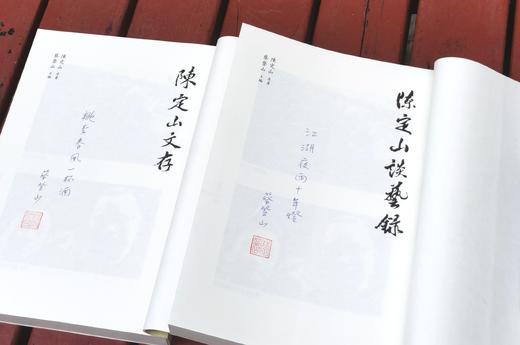 陳定山 原著
蔡登山 主編
陳定山文存
桃李春風一杯酒
蔡登山
陳定山 原著
蔡登山 主編
陳定山談藝錄
江湖夜雨十年燈
蔡登山